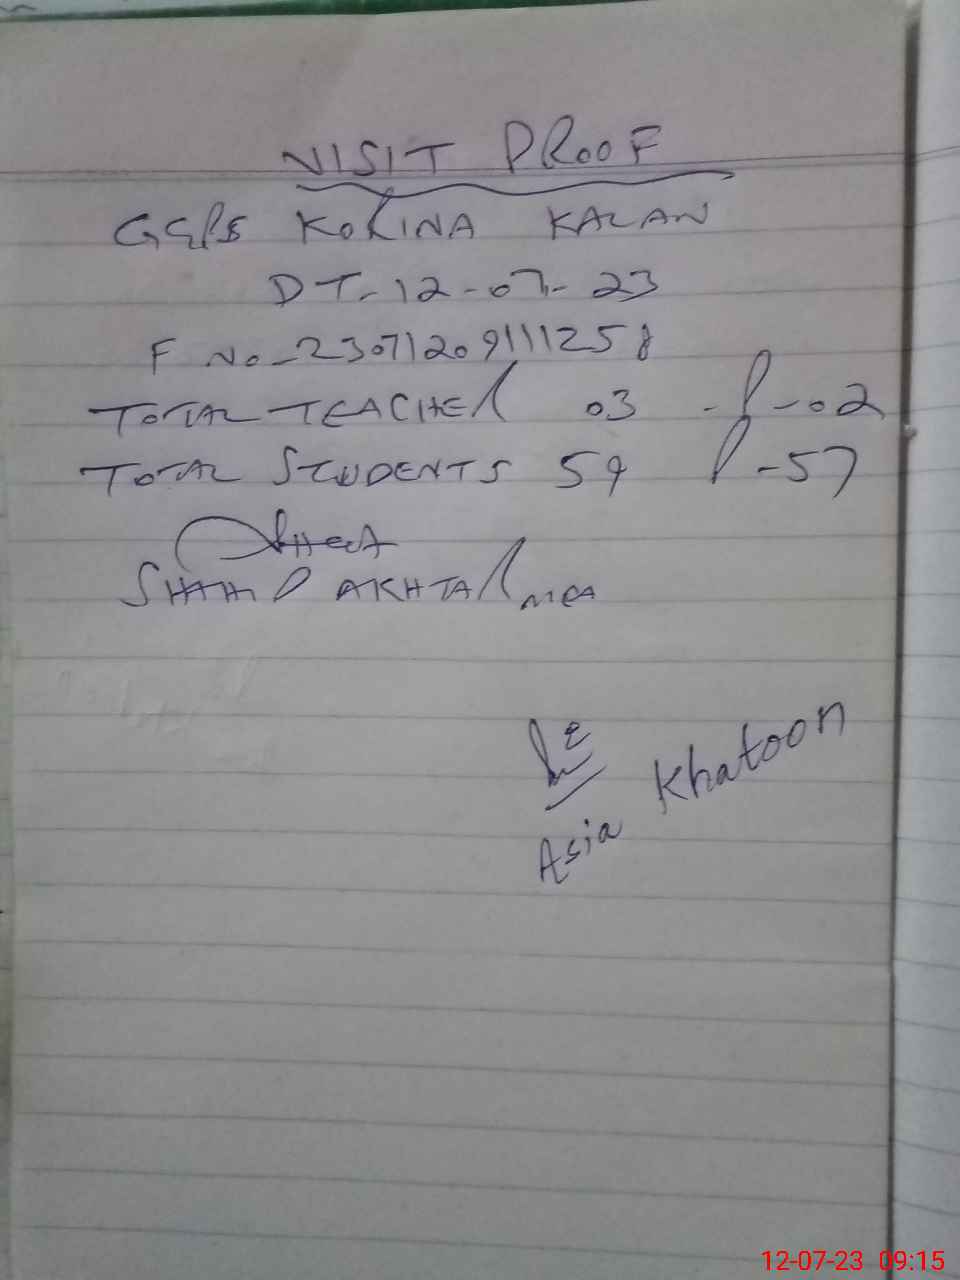 VISIT PROOF
GGPS KORINA KALAN
DT-12-07-23
F No-23071209111258
TOTAL TEACHER 03 - P-02
TOTAL STUDENTS 59 P-57
SHAHID AKHTAR MEA
Asia Khatoon
12-07-23 09:15